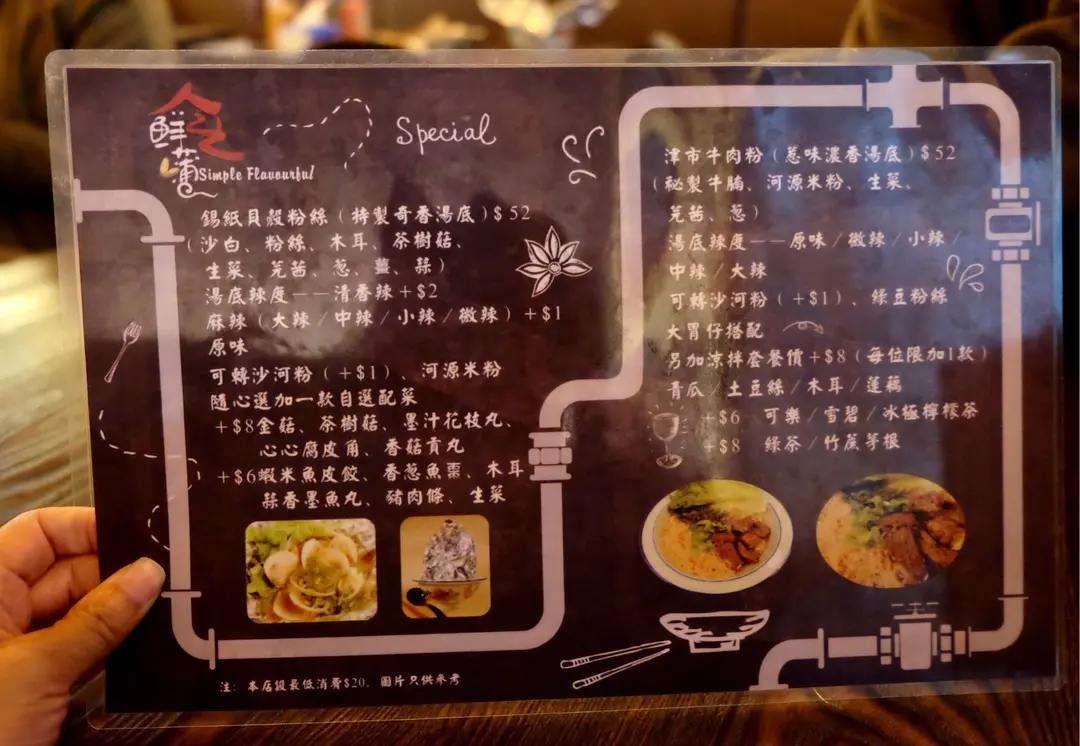 鮮入圍
蒲
Simple Flavourful
Special
錫紙貝殼粉絲（特製奇香湯底）$52
（沙白、粉絲、木耳、茶樹菇、
生菜、芫茜、蔥、薑、蒜）
湯底辣度——清香辣+$2
麻辣（大辣/中辣/小辣/微辣）+$1
原味
可轉沙河粉（+$1）、河源米粉
隨心選加一款自選配菜
+$8金菇、茶樹菇、墨汁花枝丸、
心心腐皮角、香菇貢丸
+$6蝦米魚皮餃、香蔥魚棗、木耳
蒜香墨魚丸、豬肉條、生菜
注：本店設最低消費$20，圖片只供參考
津市牛肉粉（蔥味濃香湯底）$52
（秘製牛腩、河源米粉、生菜、
芫茜、蔥）
湯底辣度——原味/微辣/小辣/
中辣/大辣
可轉沙河粉（+$1）、綠豆粉絲
大胃仔搭配
另加涼拌套餐價+$8（每位限加1款）
青瓜/土豆絲/木耳/蓮藕
+$6 可樂/雪碧/冰極檸檬茶
+$8 綠茶/竹蔗茅根